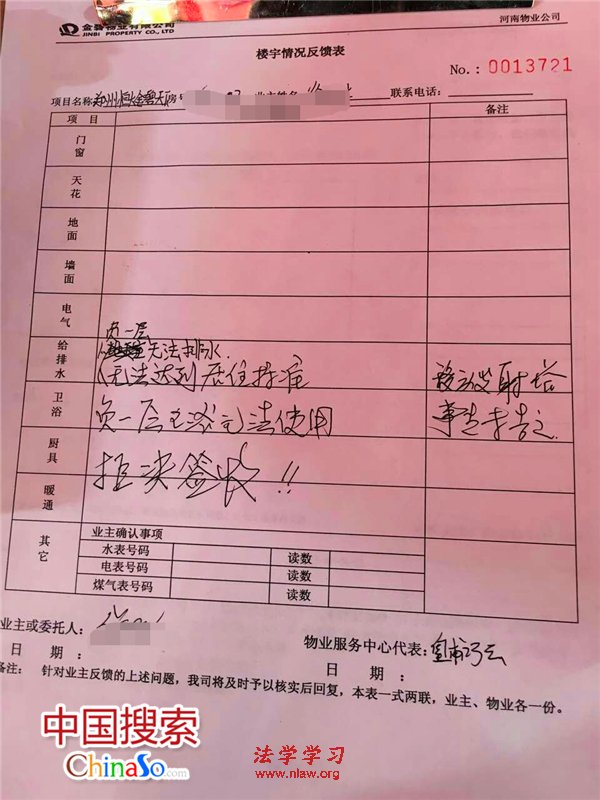 金碧物业有限公司
JINBI PROPERTY CO., LTD
河南物业公司
楼宇情况反馈表
No.: 0013721
项目名称 房号 业主姓名 联系电话:
项 目 备注
门窗
天花
地面
墙面
电气
负一层
给排水 无法排水.
无法达到居住标准 移动发射塔
卫浴 负一层 使用 事先未告之
厨具 拒决签收!!
暖通
其它 业主确认事项
水表号码 读数
电表号码 读数
煤气表号码 读数
业主或委托人:
物业服务中心代表:
日 期: 日 期:
备注: 针对业主反馈的上述问题，我司将及时予以核实后回复，本表一式两联，业主、物业各一份。
中国搜索
ChinaSo.com
法学学习
www.nlaw.org